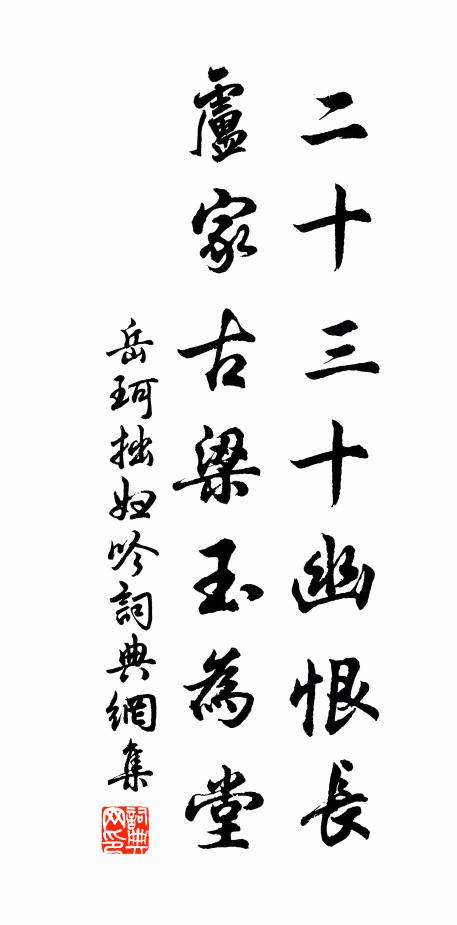 二十三十幽恨長
盧家古梁玉為堂
岳珂拙妲吟詞典網集
詞典
网印